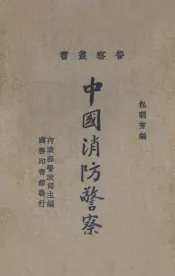 書叢察警
包明芳編
中國消防警察
內政部警政司主編
商務印書館發行